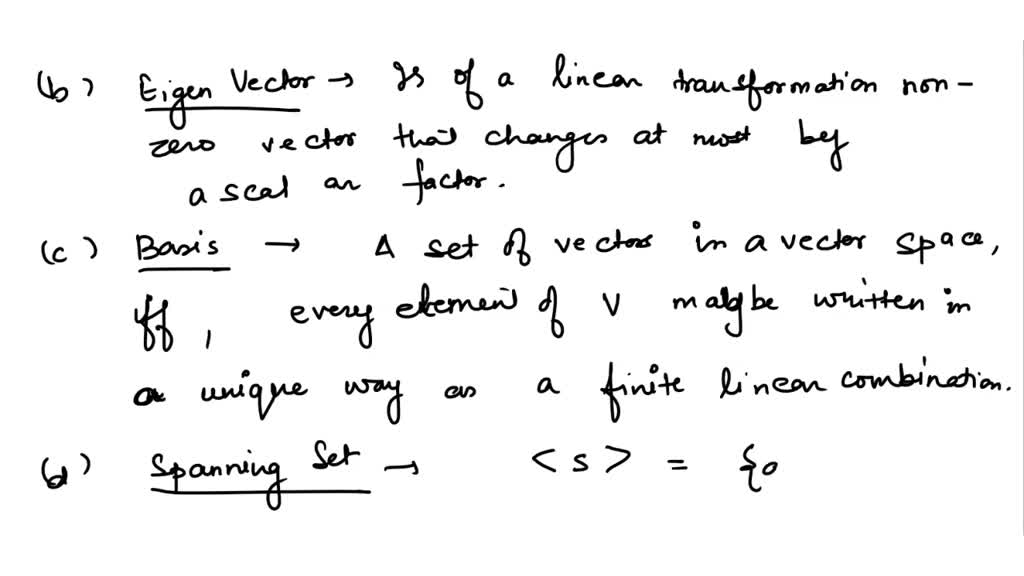 (b) Eigen Vector → Is of a linear transformation non-
zero vector that changes at most by
a scal ar factor.
(c) Basis → A set of vectors in a vector space,
iff, every element of V may be written in
a unique way as a finite linear combination.
(d) Spanning Set → <s> = {a